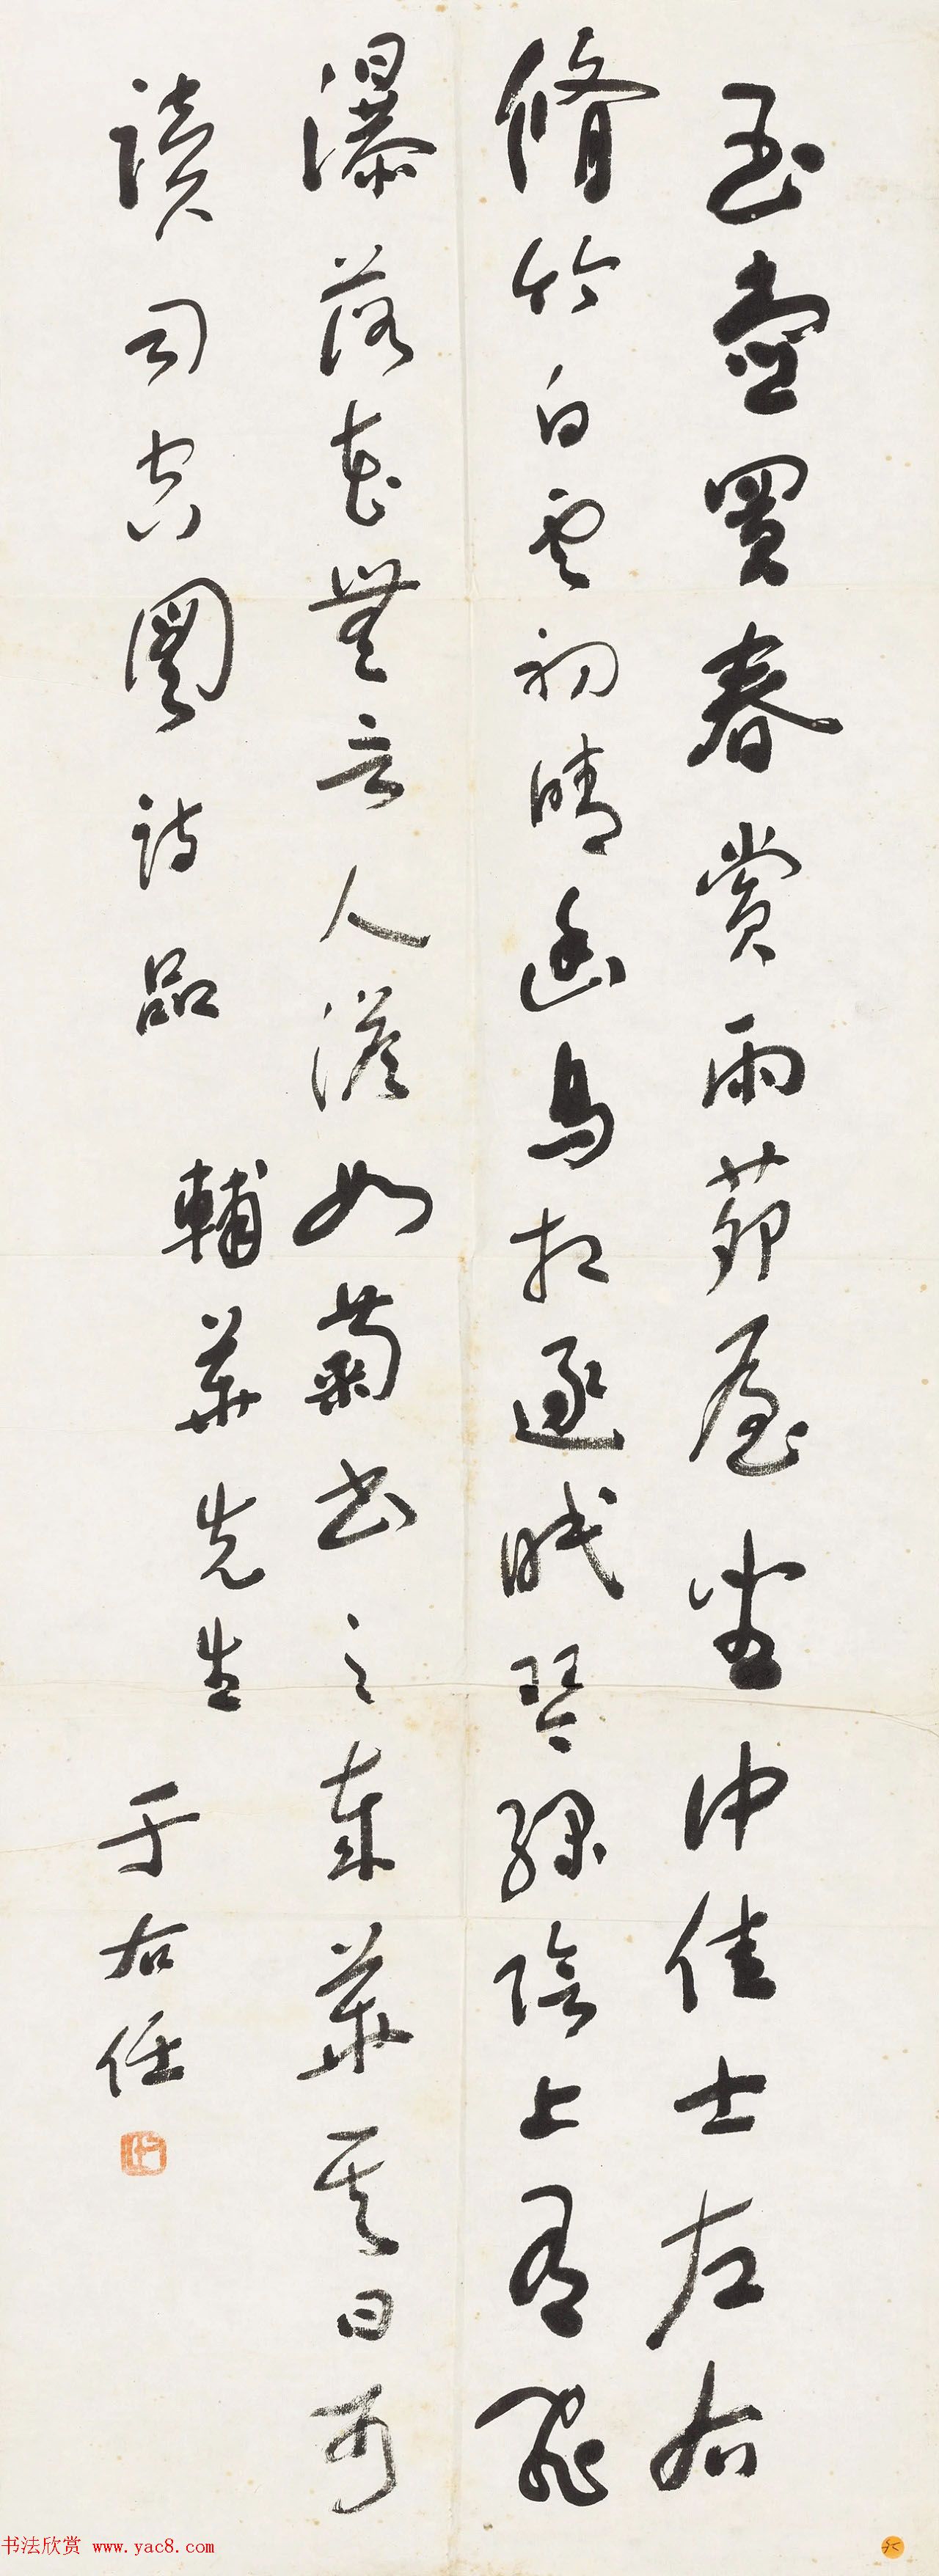 玉壺買春賞雨茆屋坐中佳士左右
脩竹白雲初晴幽鳥相逐眠琴綠陰上有飛
瀑落花無言人淡如菊書之歲華其曰可
讀司空圖詩品
輔華先生
于右任
书法欣赏 www.yac8.com